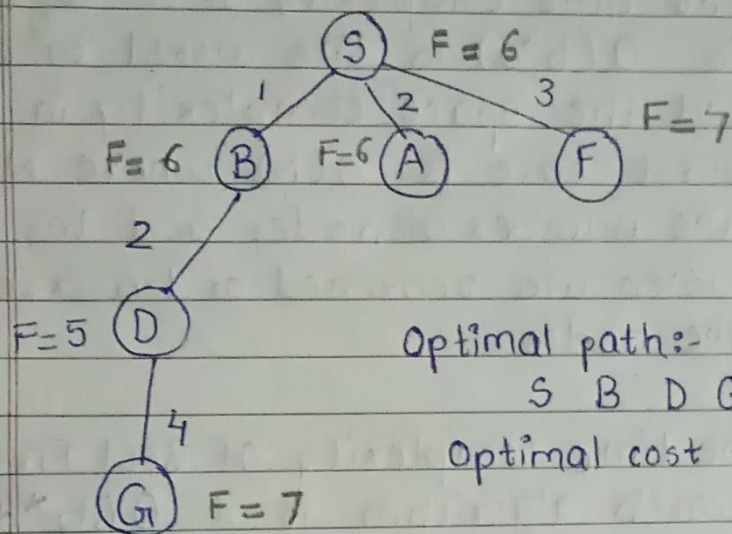 S F = 6
1 2 3
F = 6 B F=6 A F F = 7
2
F=5 D
Optimal path:-
S B D G
4
Optimal cost
G F = 7